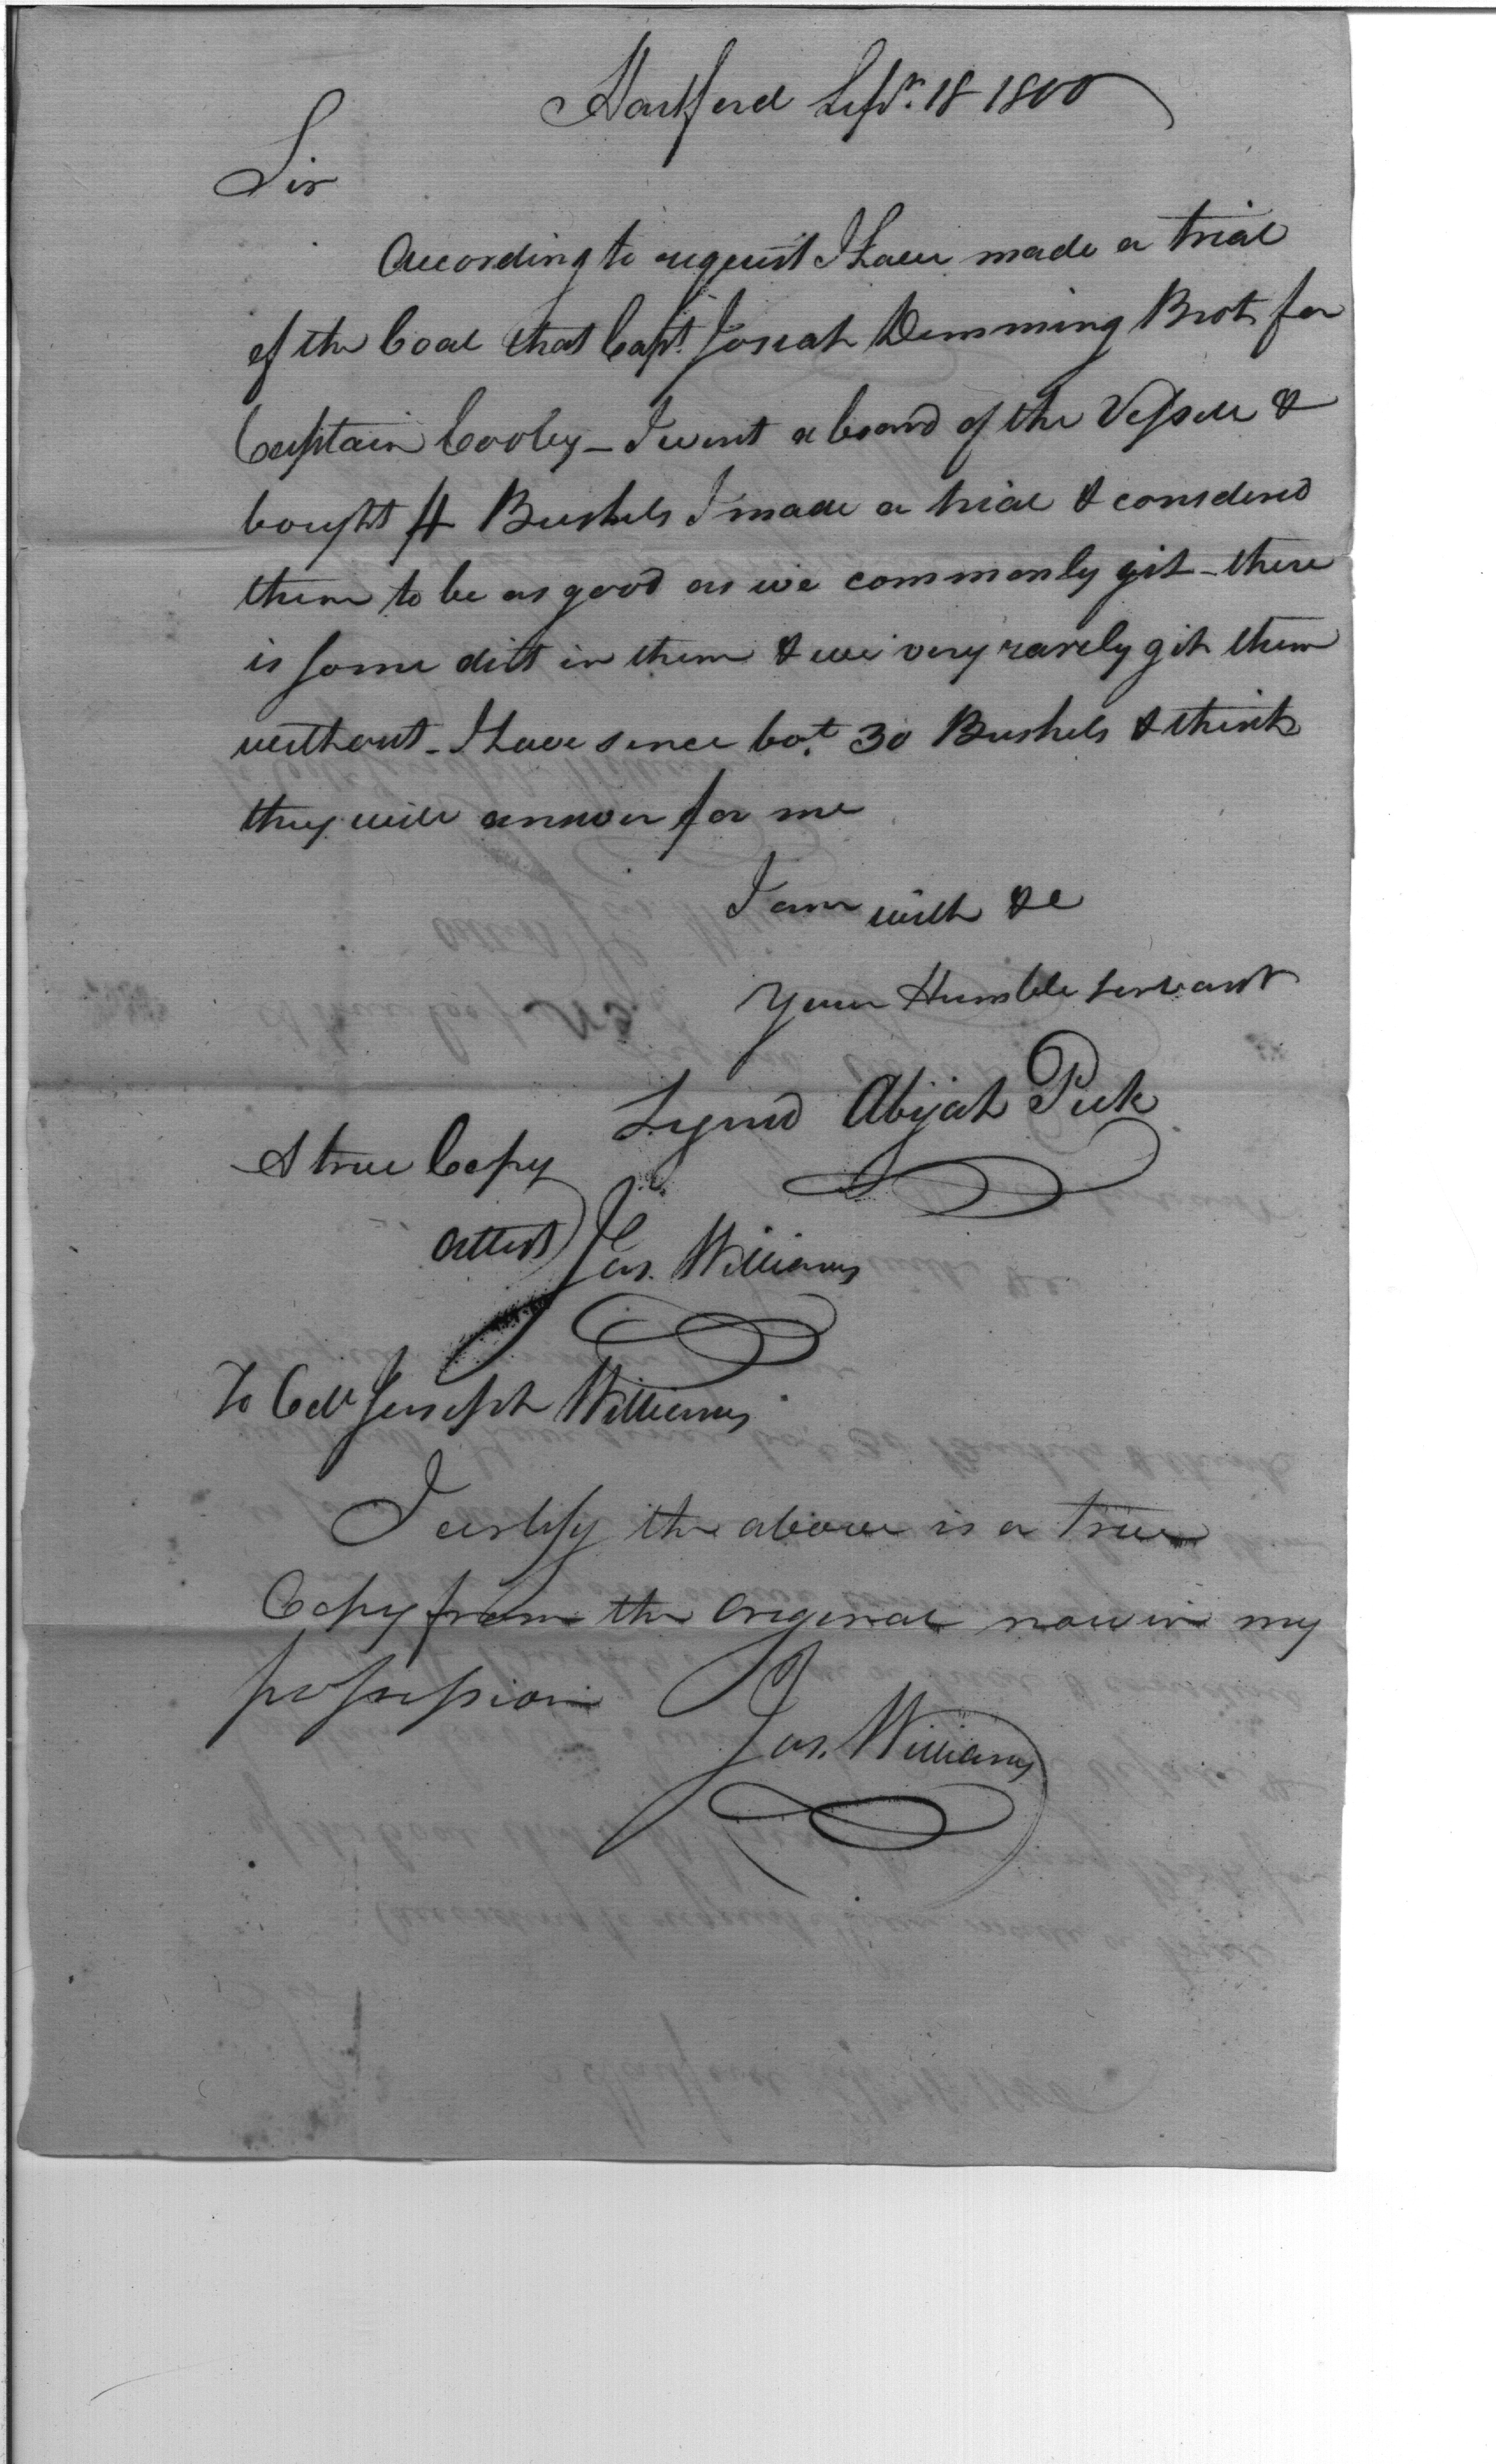 Hartford Sepr. 18 1800
Sir
According to request I have made a trial
of the Coal that Capt. Josiah Demming Brot for
Captain Cooley - I went a board of the Vessell &
bought 4 Bushels I made a trial & considered
them to be as good as we commonly git - there
is some dirt in them & we very rarely git them
without - I have since bot. 30 Bushels & think
they will answer for me
I am with &c
Your Humble Servant
Signd Abijah Peck
A true Copy
attest Jos. Williams
To Coll Joseph Williams
I certify the above is a true
Copy from the original now in my
possession
Jos. Williams